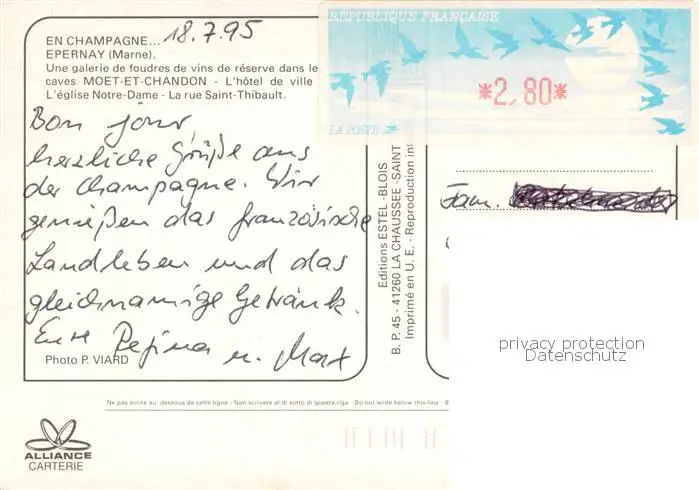 18.7.95
EN CHAMPAGNE...
EPERNAY (Marne).
Une galerie de foudres de vins de réserve dans le
caves MOET-ET-CHANDON - L'hôtel de ville
L'église Notre-Dame - La rue Saint-Thibault.
Bon jour,
herzliche Grüße aus
der Champagne. Wir
genießen das französische
Landleben und das
gleichnamige Getränk.
Eure Regina u. Max
Photo P. VIARD
ALLIANCE
CARTERIE
Ne pas écrire au dessous de cette ligne - Non scrivere al di sotto di questa riga - Do not write below this line - B
Editions ESTEL - BLOIS
B. P. 45 - 41260 LA CHAUSSEE - SAINT
Imprimé en U. E. - Reproduction int
RÉPUBLIQUE FRANÇAISE
*2,80*
LA POSTE
Fam.
privacy protection
Datenschutz